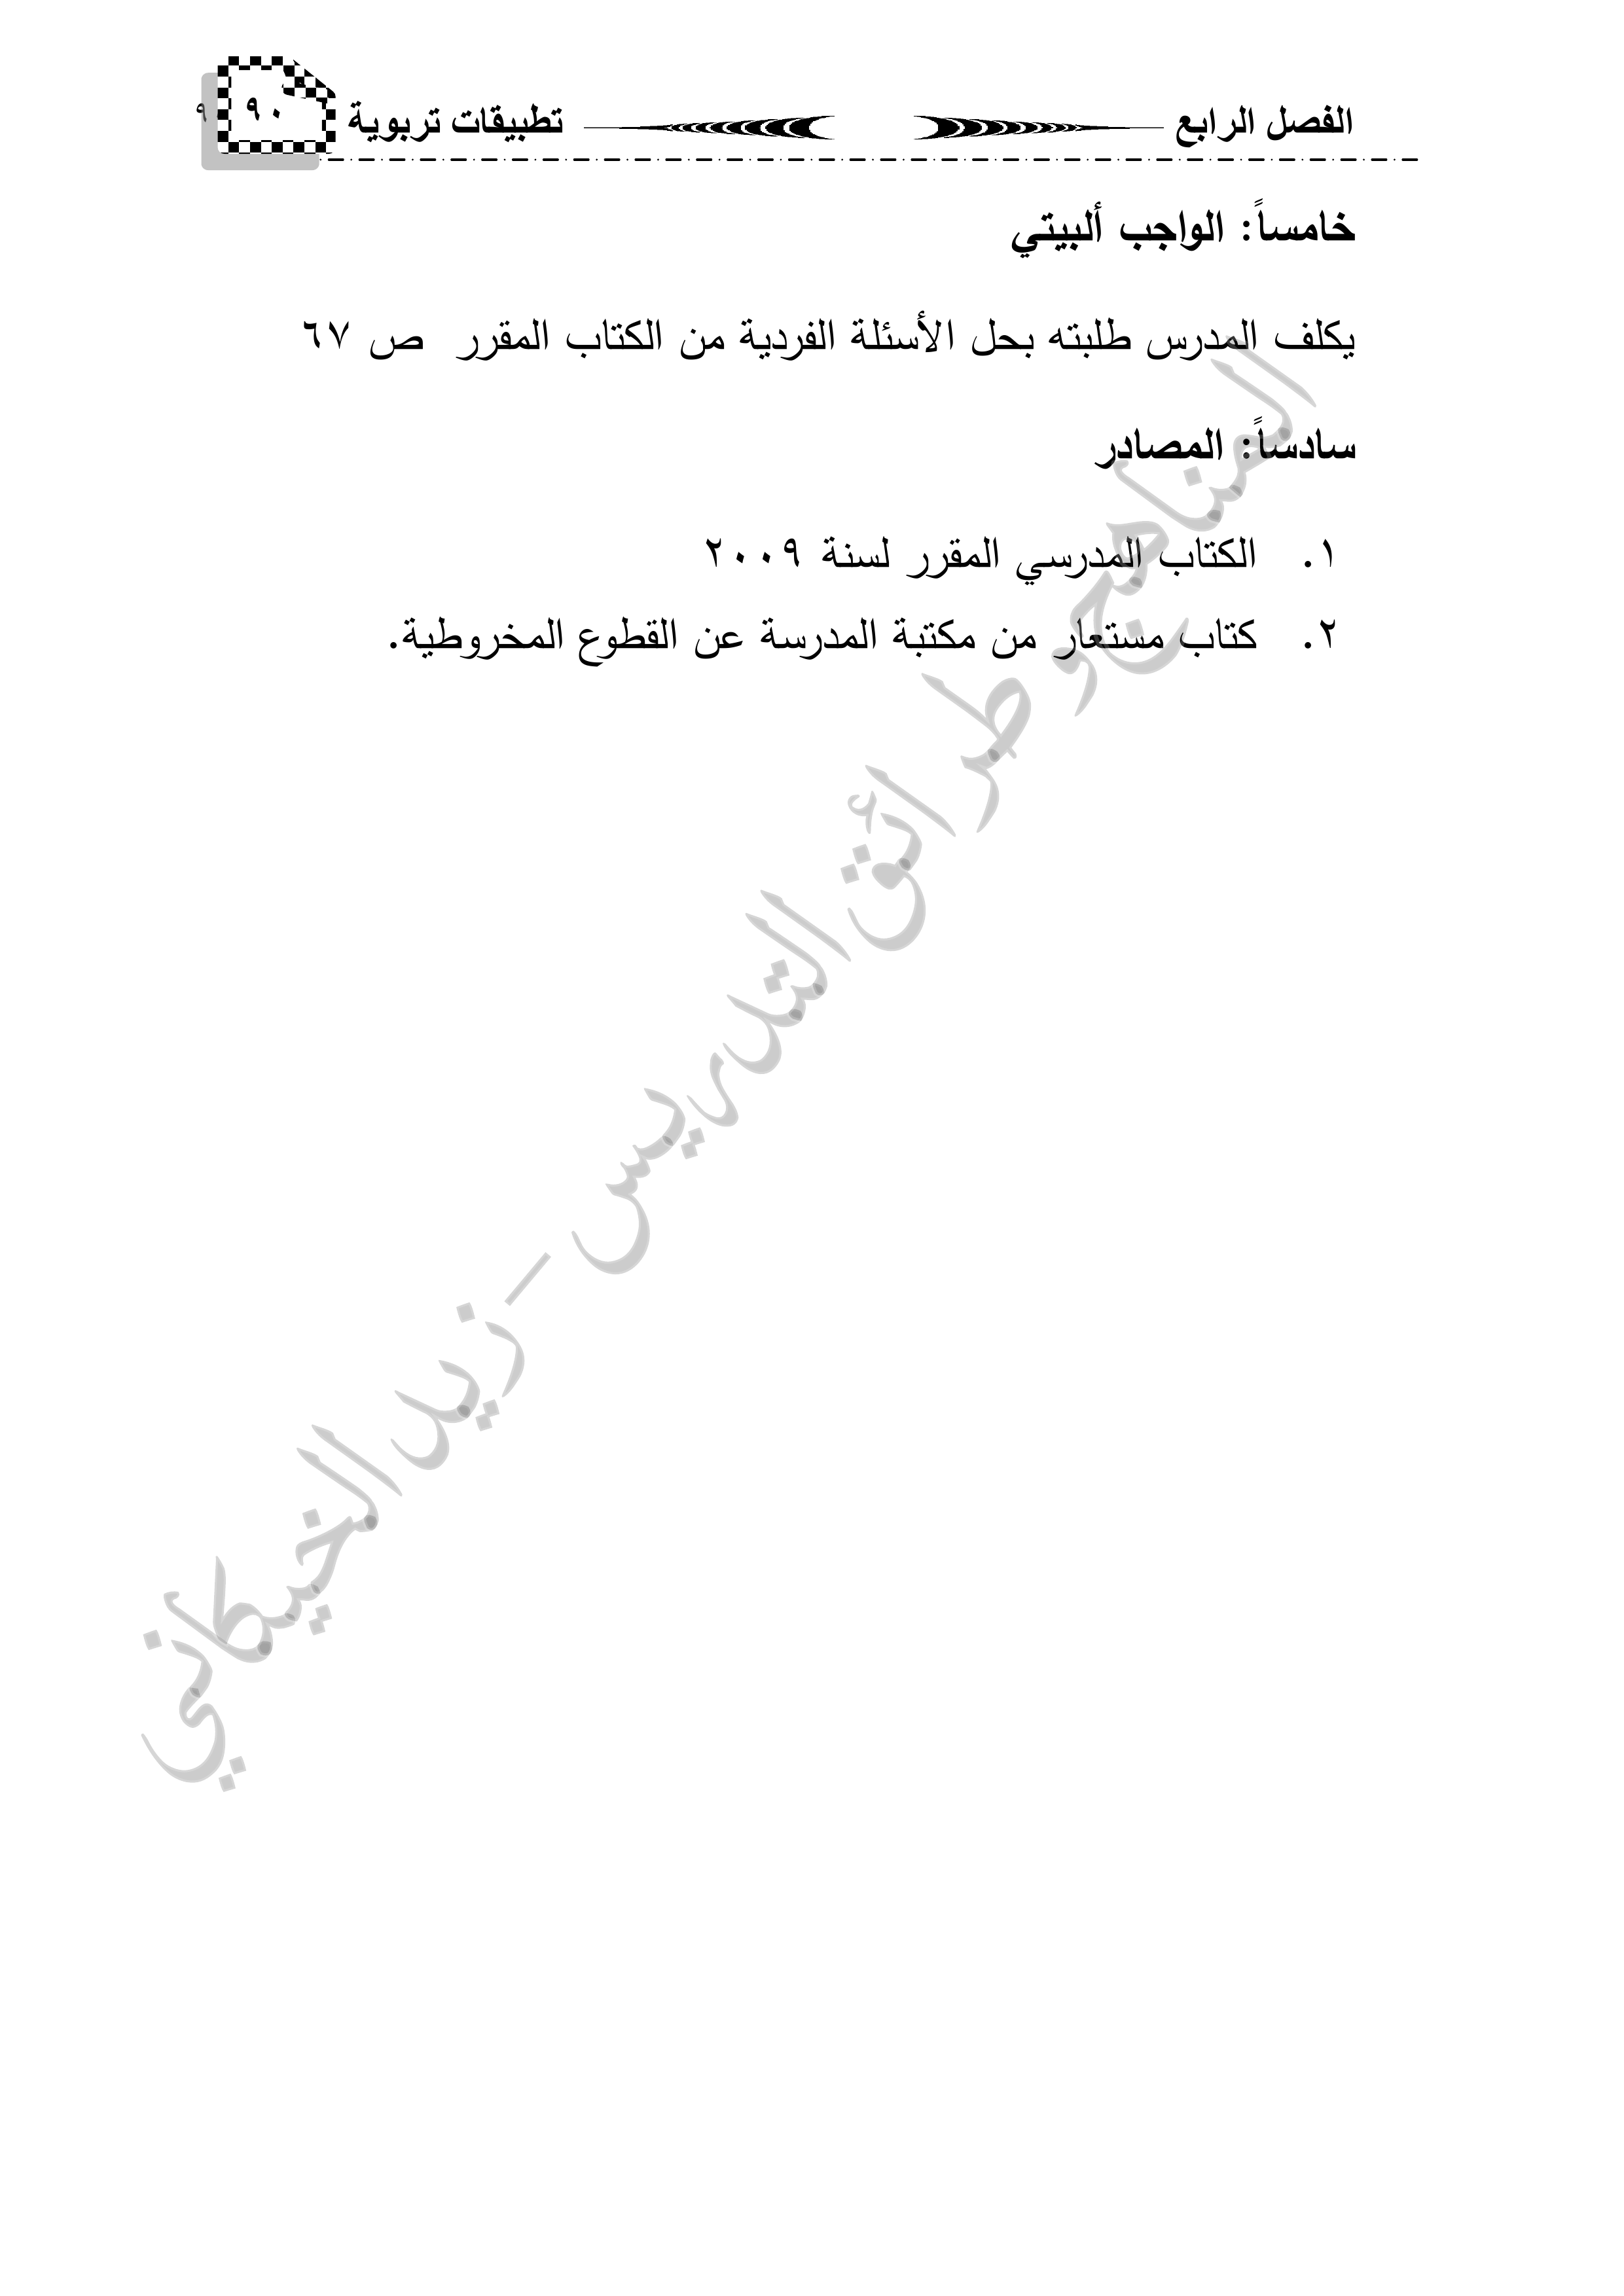 الفصل الرابع تطبيقات تربوية ٩٠ ٩
خامساً: الواجب ألبيتي
يكلف المدرس طلبته بحل الأسئلة الفردية من الكتاب المقرر ص ٦٧
سادساً: المصادر
١. الكتاب المدرسي المقرر لسنة ٢٠٠٩
٢. كتاب مستعار من مكتبة المدرسة عن القطوع المخروطية.
المناهج و طرائق التدريس - زيد الخيكاني